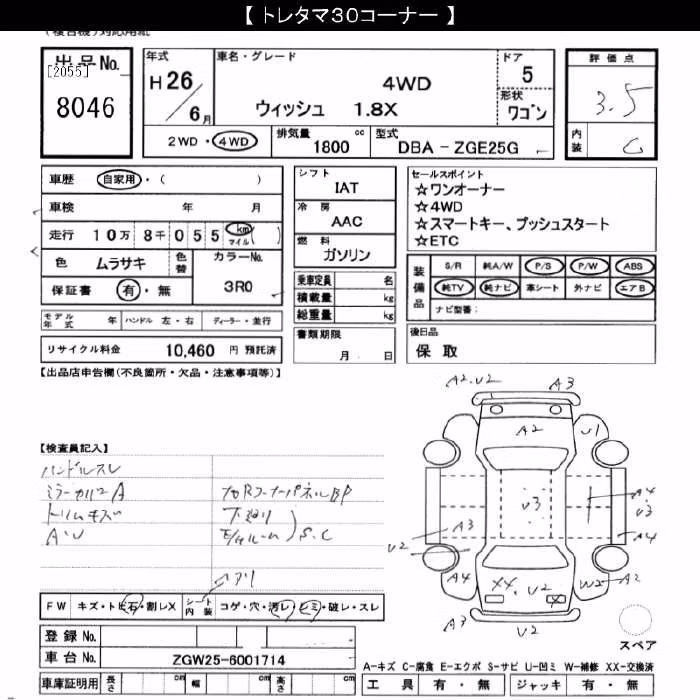 【 トレタマ３０コーナー 】
(複合機) 対応用紙
出品No.
[2055]
8046
年式
H 26 / 6月
車名・グレード
4WD
ウィッシュ 1.8X
ドア
5
形状
ワゴン
評価点
3.5
内装
C
2WD・4WD
排気量 1800 cc
型式 DBA - ZGE25G
車歴 自家用・( )
車検 年 月
走行 10万 8千 0 5 5 km マイル ( )
色 ムラサキ 色替
カラーNo. 3R0
保証書 有・無
モデル年式 年 ハンドル 左・右 ディーラー・並行
リサイクル料金 10,460 円 預託済
シフト
IAT
冷房
AAC
燃料
ガソリン
乗車定員 名
積載量 kg
総重量 kg
書類期限
月 日
セールスポイント
☆ワンオーナー
☆4WD
☆スマートキー、プッシュスタート
☆ETC
装備品
S/R 純A/W P/S P/W ABS
純TV 純ナビ 革シート 外ナビ エアB
ナビ型番：
後日品
保 取
【出品店申告欄(不良箇所・欠品・注意事項等)】
【検査員記入】
ハンドルスレ
ミラーカバーA
トリムキズ
A・U
カRコーナーパネルBP
下廻り
S.C
FW キズ・トビ石・割レX
シート内装 コゲ・穴・汚レ・シミ・破レ・スレ
登録No.
車台No. ZGW25-6001714
車庫証明用 長さ cm 幅 cm 高さ cm
A2.U2
A3
A2
U1
U3
A4
U3
A3
U2
A4
A4
XX.U2
X
W2
A2
A3
U2
スペア
A-キズ C-腐食 E-エクボ S-サビ U-凹ミ W-補修 XX-交換済
工具 有・無 ジャッキ 有・無